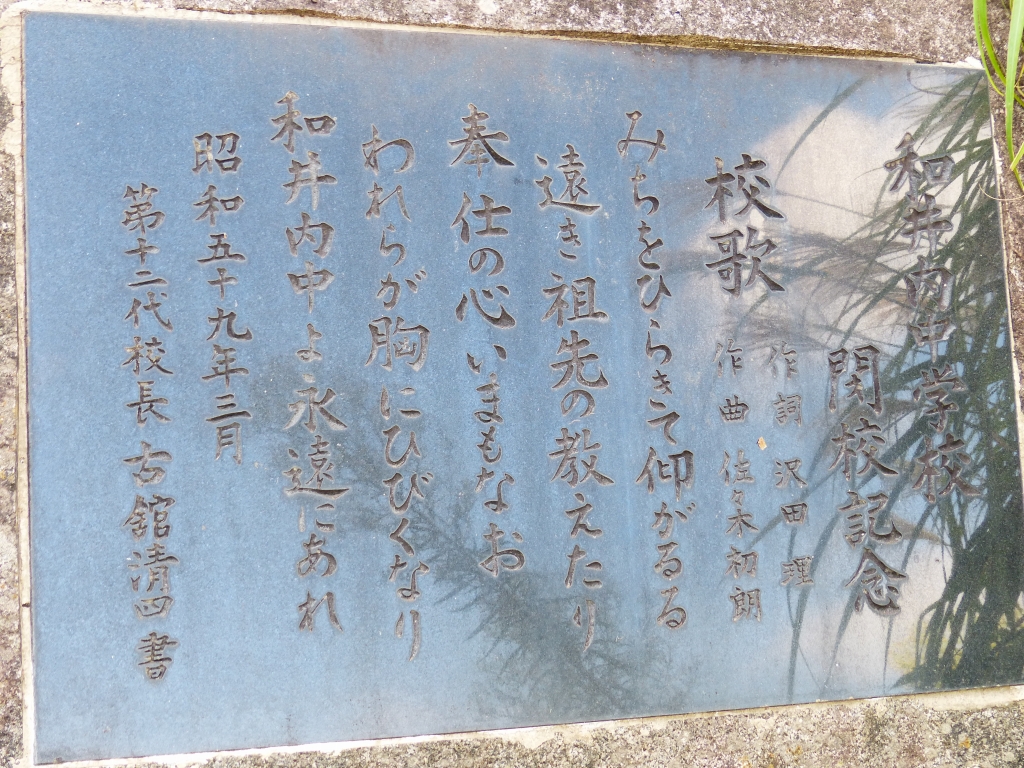 和井内中学校
閉校記念
校歌
作詞 沢田 理
作曲 佐々木初朗
みちをひらきて仰がるる
遠き祖先の教えたり
奉仕の心いまもなお
われらが胸にひびくなり
和井内中よ永遠にあれ
昭和五十九年三月
第十二代校長 古舘清四書